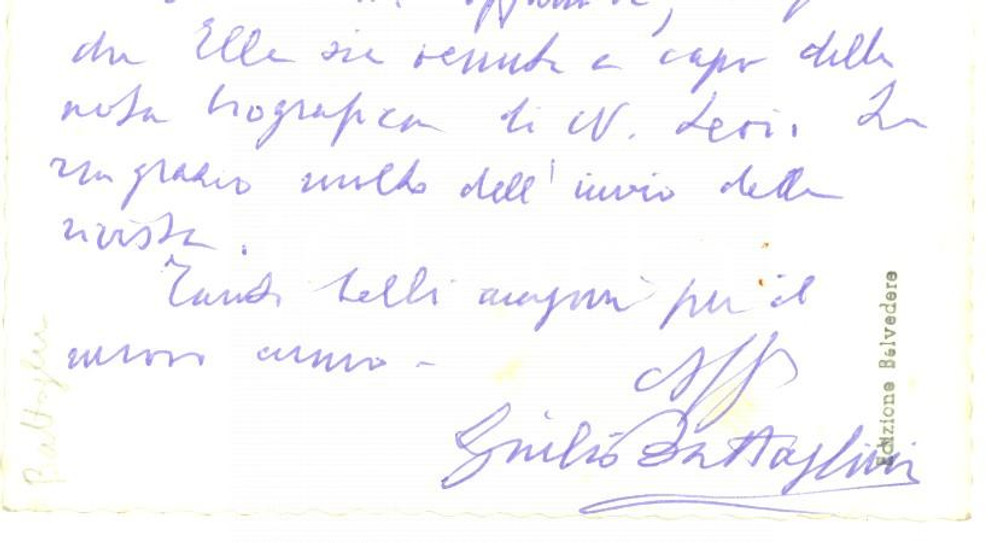 che Ella sia venuta a capo della
nota biografica di N. Levi. La
ringrazio molto dell'invio della
rivista.
Tanti belli auguri per il
nuovo anno -
Aff
Giulio Battaglini
Edizione Belvedere